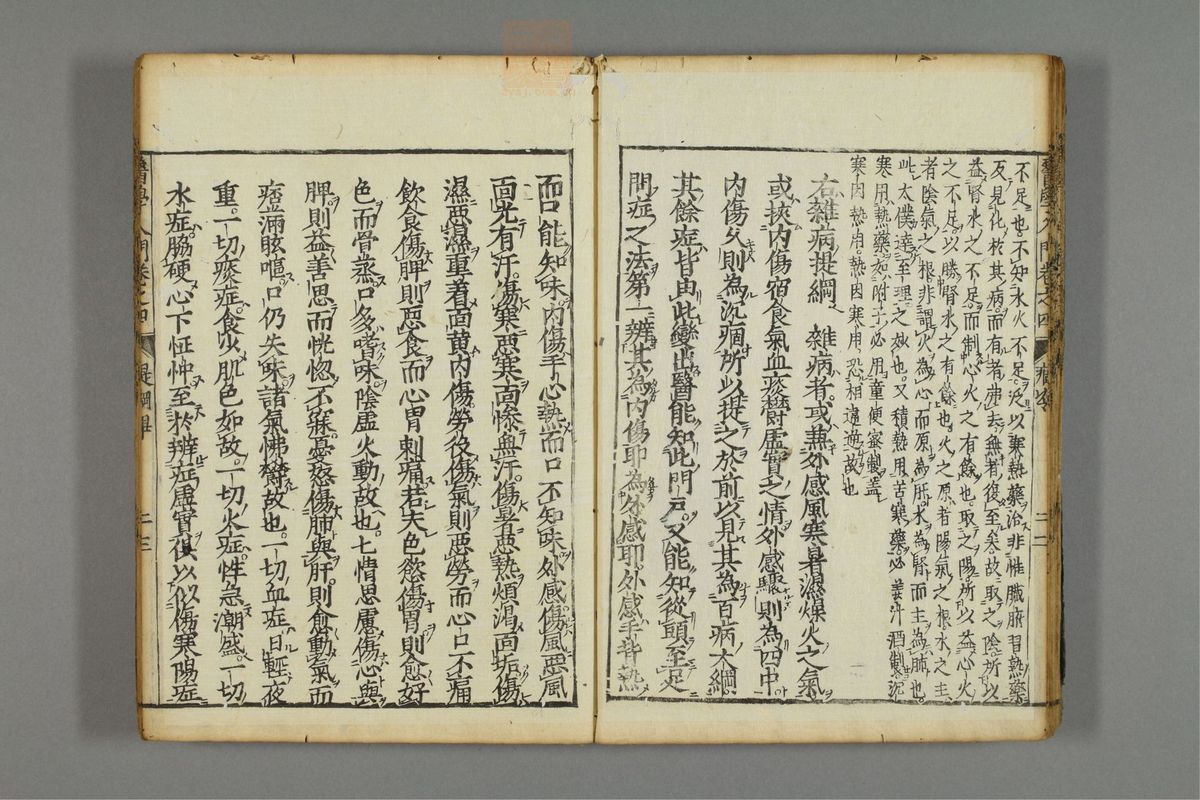 不足也不知水火不足反以寒熱藥治非惟臟腑習熟藥
反見化於其病而有者弗去無者復至矣故取之陰所以
益腎水之不足而制心火之有餘也取之陽所以益心火
之不足以勝腎水之有餘也火之原者陽氣之根水之主
者陰氣之根非謂火為心而原為肝水為腎而主為肺也
此太僕達至理之妙也又積熱用苦寒藥必姜汁酒製沉
寒用熱藥如附子必用童便蜜制蓋
寒因熱用熱因寒用恐相違逆故也
右雜病提綱 雜病者或兼外感風寒暑濕燥火之氣
或挾內傷宿食氣血痰鬱虛實之情外感驟則為四中
內傷久則為沉痼所以提之於前以見其為百病大綱
其餘症皆由此變出醫能知此門戶又能知從頭至足
問症之法第一辨其為內傷耶為外感耶外感手背熱
而口能知味內傷手心熱而口不知味外感傷風惡風
面光有汗傷寒惡寒面慘無汗傷暑惡熱煩渴面垢傷
濕惡濕重着面黃內傷勞役傷氣則惡勞而心口不痛
飲食傷脾則惡食而心胃刺痛若夫色慾傷腎則愈好
色而骨蒸口多嗜味陰虛火動故也七情思慮傷心與
脾則益善思而恍惚不寐憂愁傷肺與肝則愈動氣而
痞滿眩嘔口仍失味諸氣怫鬱故也一切血症日輕夜
重一切痰症食少肌色如故一切火症性急潮盛一切
水症脇硬心下怔忡至於辨症虛實俱以似傷寒陽症
醫學入門卷之四 提綱
二二
二三